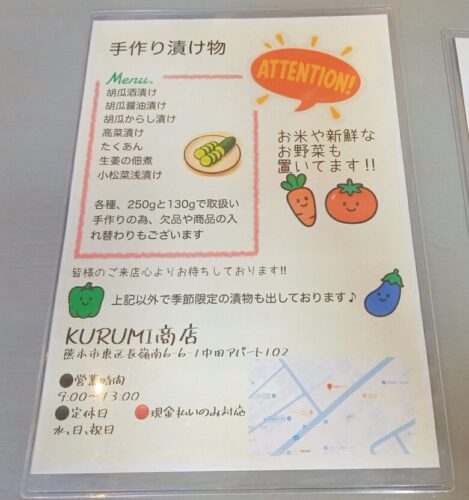 手作り漬け物
ATTENTION!
Menu.
胡瓜酒漬け
胡瓜醤油漬け
胡瓜からし漬け
高菜漬け
たくあん
生姜の佃煮
小松菜浅漬け
お米や新鮮な
お野菜も
置いてます!!
各種、250gと130gで取扱い
手作りの為、欠品や商品の入
れ替わりもございます
皆様のご来店心よりお待ちしております!!
上記以外で季節限定の漬物も出しております♪
KURUMI商店
熊本市東区長嶺南6-6-1中田アパート102
●営業時間
9:00~13:00
●定休日 ●現金払いのみ対応
水、日、祝日